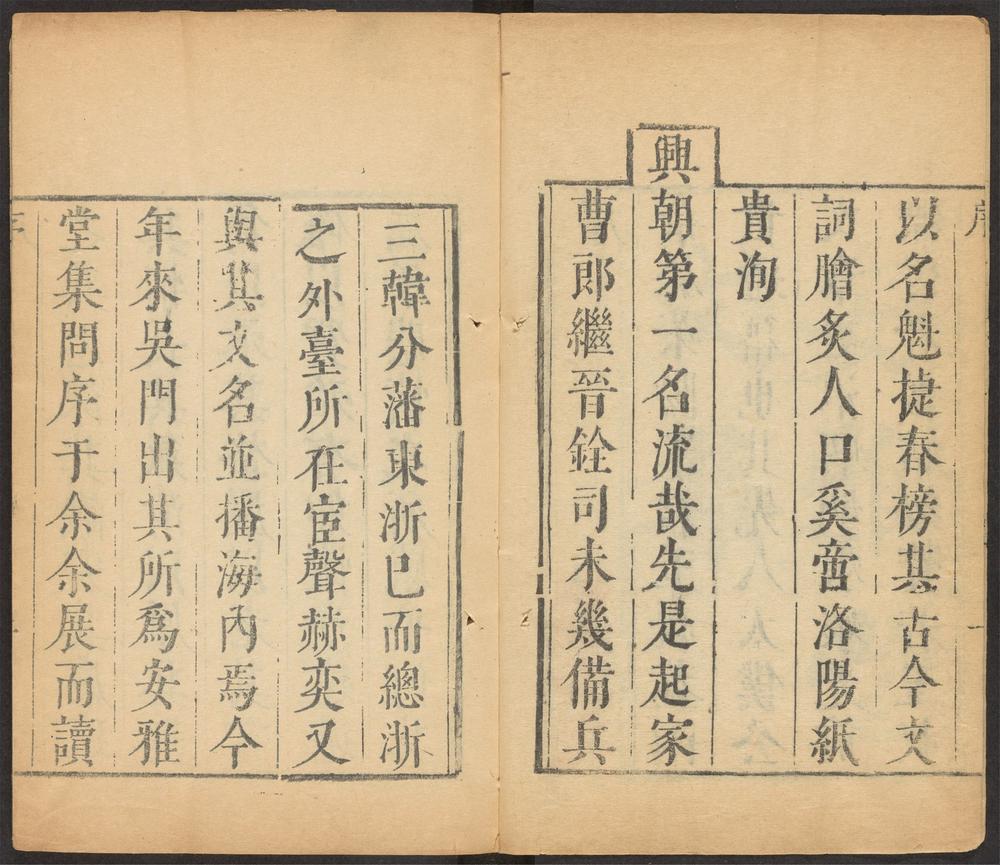 序
以名魁捷春榜其古今文
詞膾炙人口奚啻洛陽紙
貴洵
興朝第一名流哉先是起家
曹郎繼晉銓司未幾備兵
三韓分藩東浙巳而總浙
之外臺所在宦聲赫奕又
與其文名並播海內焉今
年來吳門出其所爲安雅
堂集問序于余余展而讀